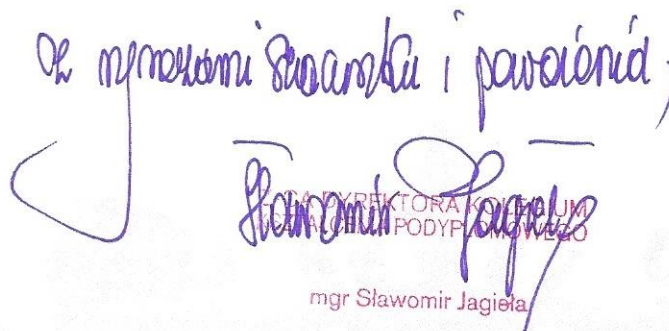 Z wyrazami szacunku i poważania,
Sławomir Jagieła
Z-CA DYREKTORA KOLEGIUM
KSZTAŁCENIA PODYPLOMOWEGO
mgr Sławomir Jagieła